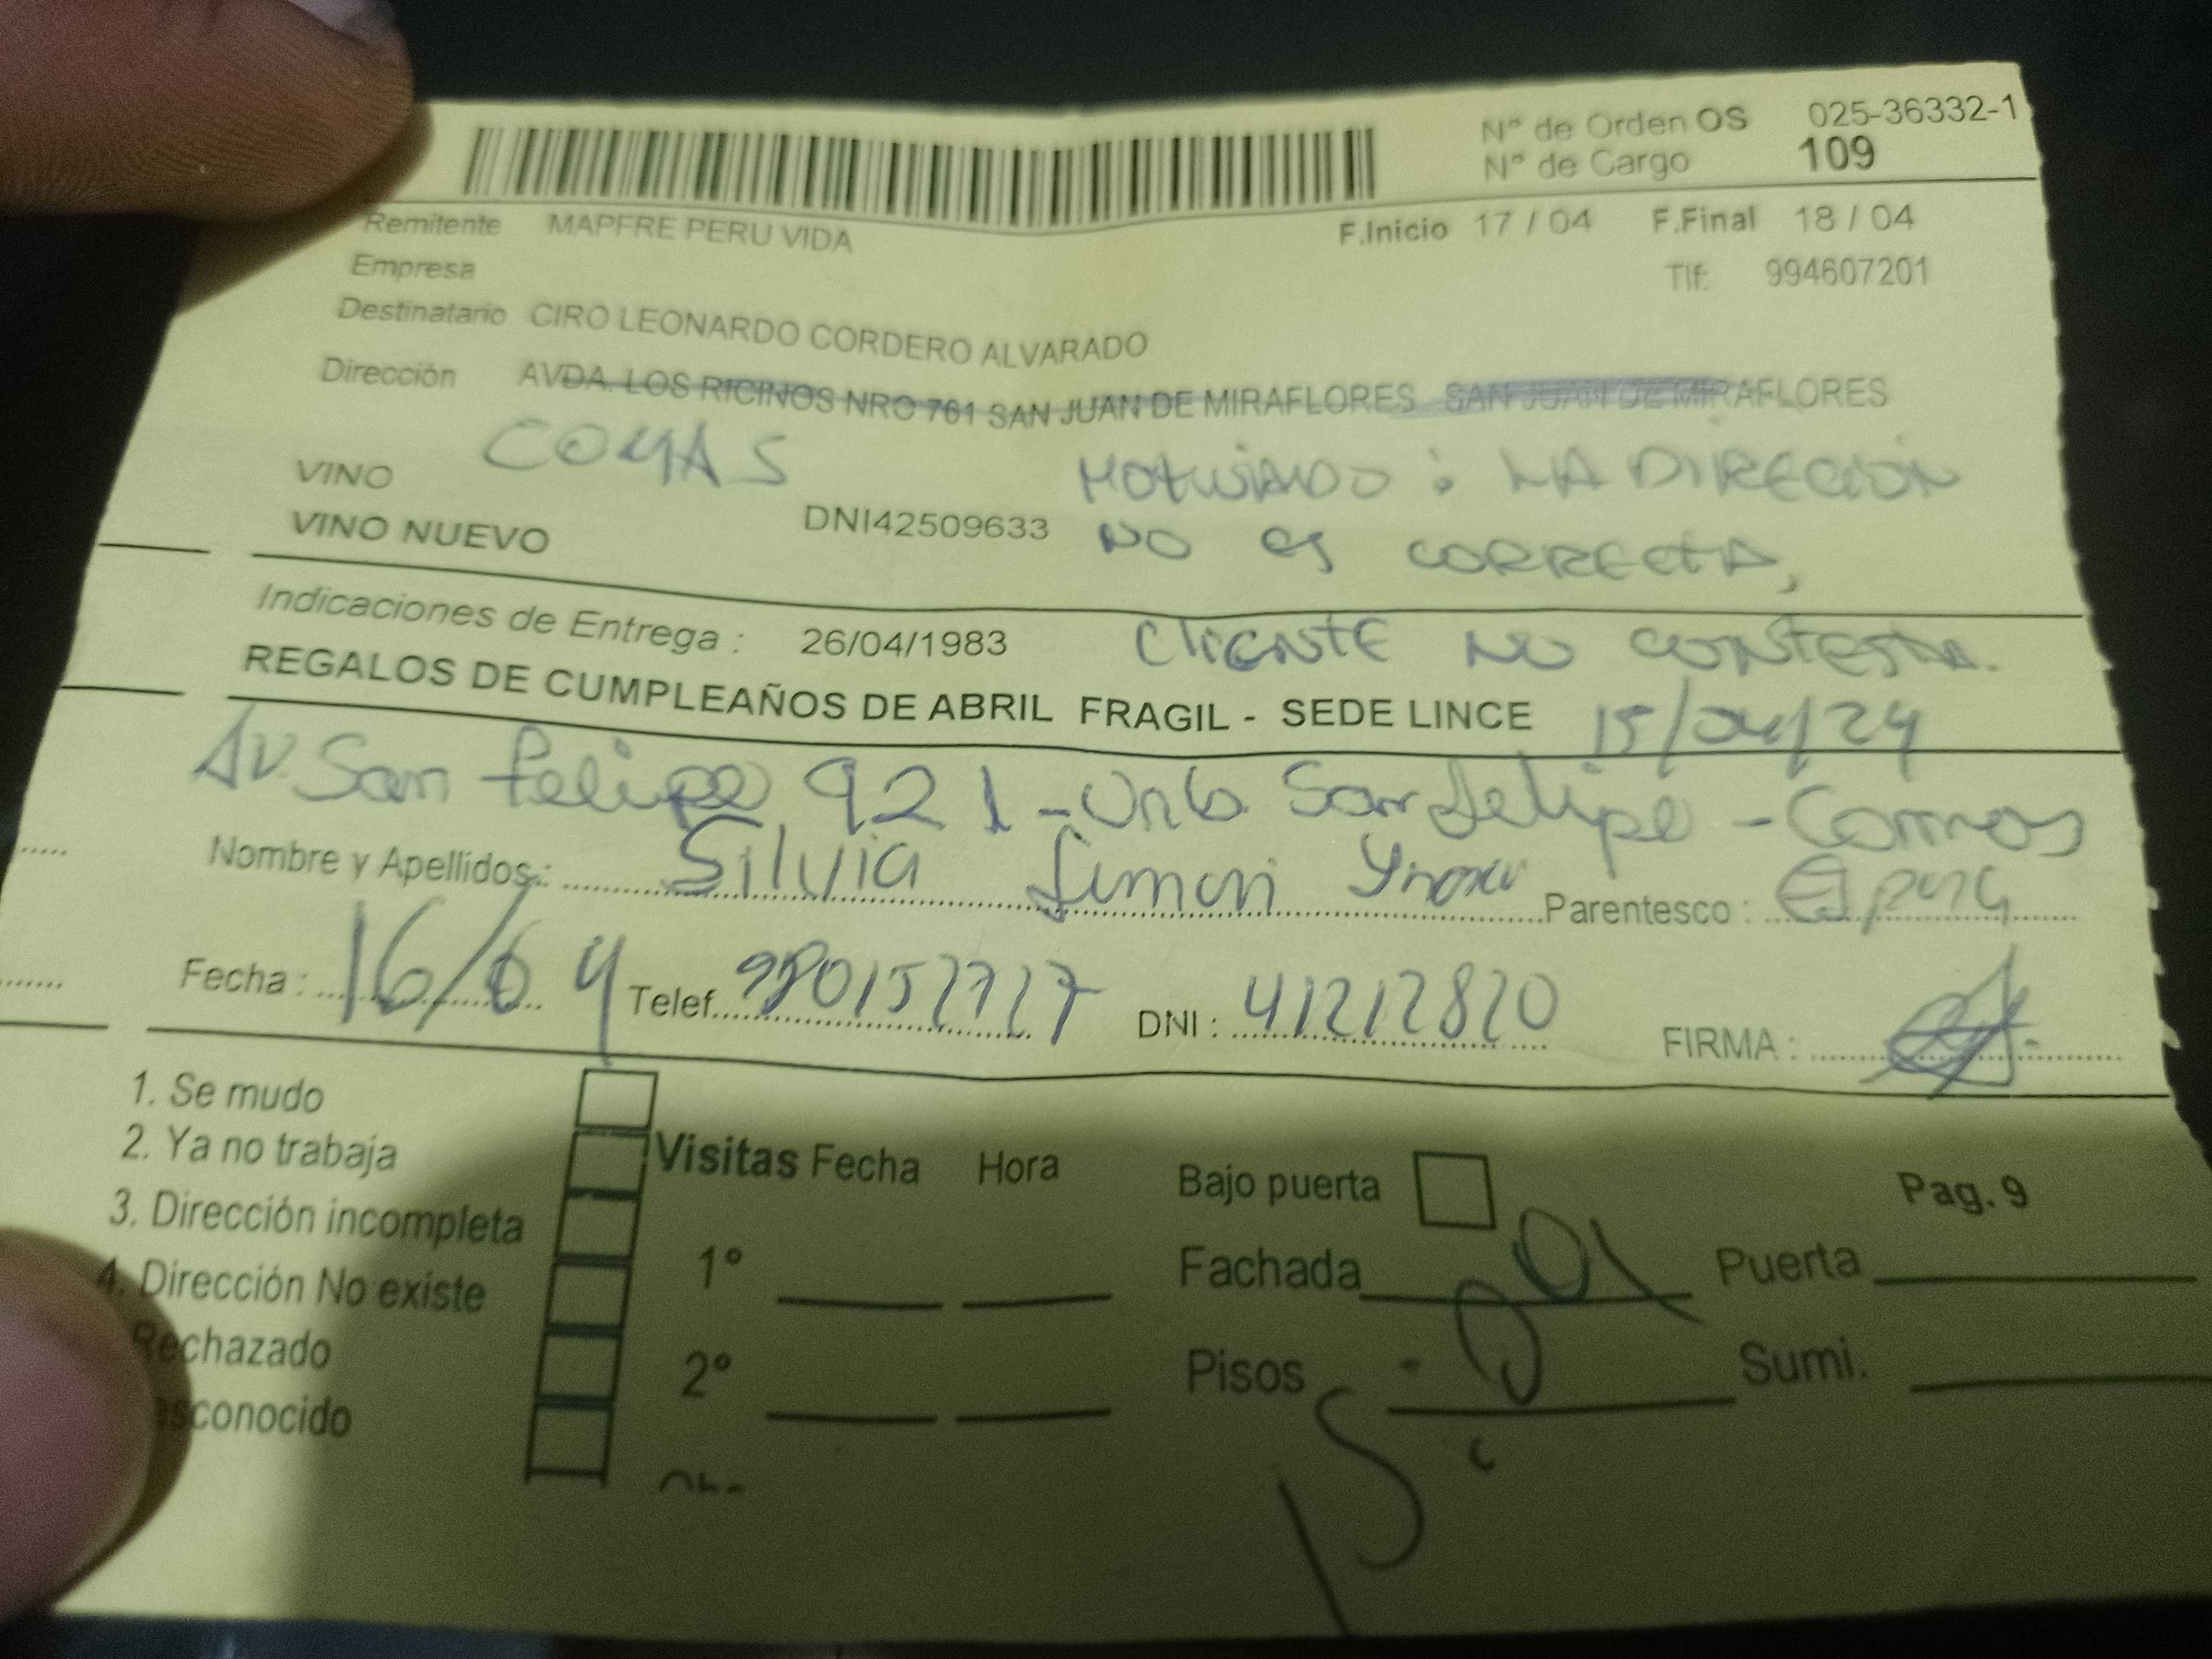 Nº de Orden OS 025-36332-1
Nº de Cargo 109
Remitente MAPFRE PERU VIDA F.Inicio 17 / 04 F.Final 18 / 04
Empresa Tlf: 994607201
Destinatario CIRO LEONARDO CORDERO ALVARADO
Dirección AVDA. LOS RICINOS NRO 761 SAN JUAN DE MIRAFLORES SAN JUAN DE MIRAFLORES
COMAS
VINO MOTIVADO : LA DIRECCION
VINO NUEVO DNI42509633 NO ES CORRECTA,
Indicaciones de Entrega : 26/04/1983 CLIENTE NO CONTESTA.
REGALOS DE CUMPLEAÑOS DE ABRIL FRAGIL - SEDE LINCE 15/04/24
Av. San Felipe 921 - Urb. San Felipe - Comas
Nombre y Apellidos : Silvia Parentesco : Esposa
Fecha : 16/04 Telef. DNI : 41212820 FIRMA :
1. Se mudo
2. Ya no trabaja
3. Dirección incompleta
4. Dirección No existe
Rechazado
sconocido
Visitas Fecha Hora
1º
2º
Bajo puerta
Fachada Puerta
Pisos Sumi.
Pag. 9